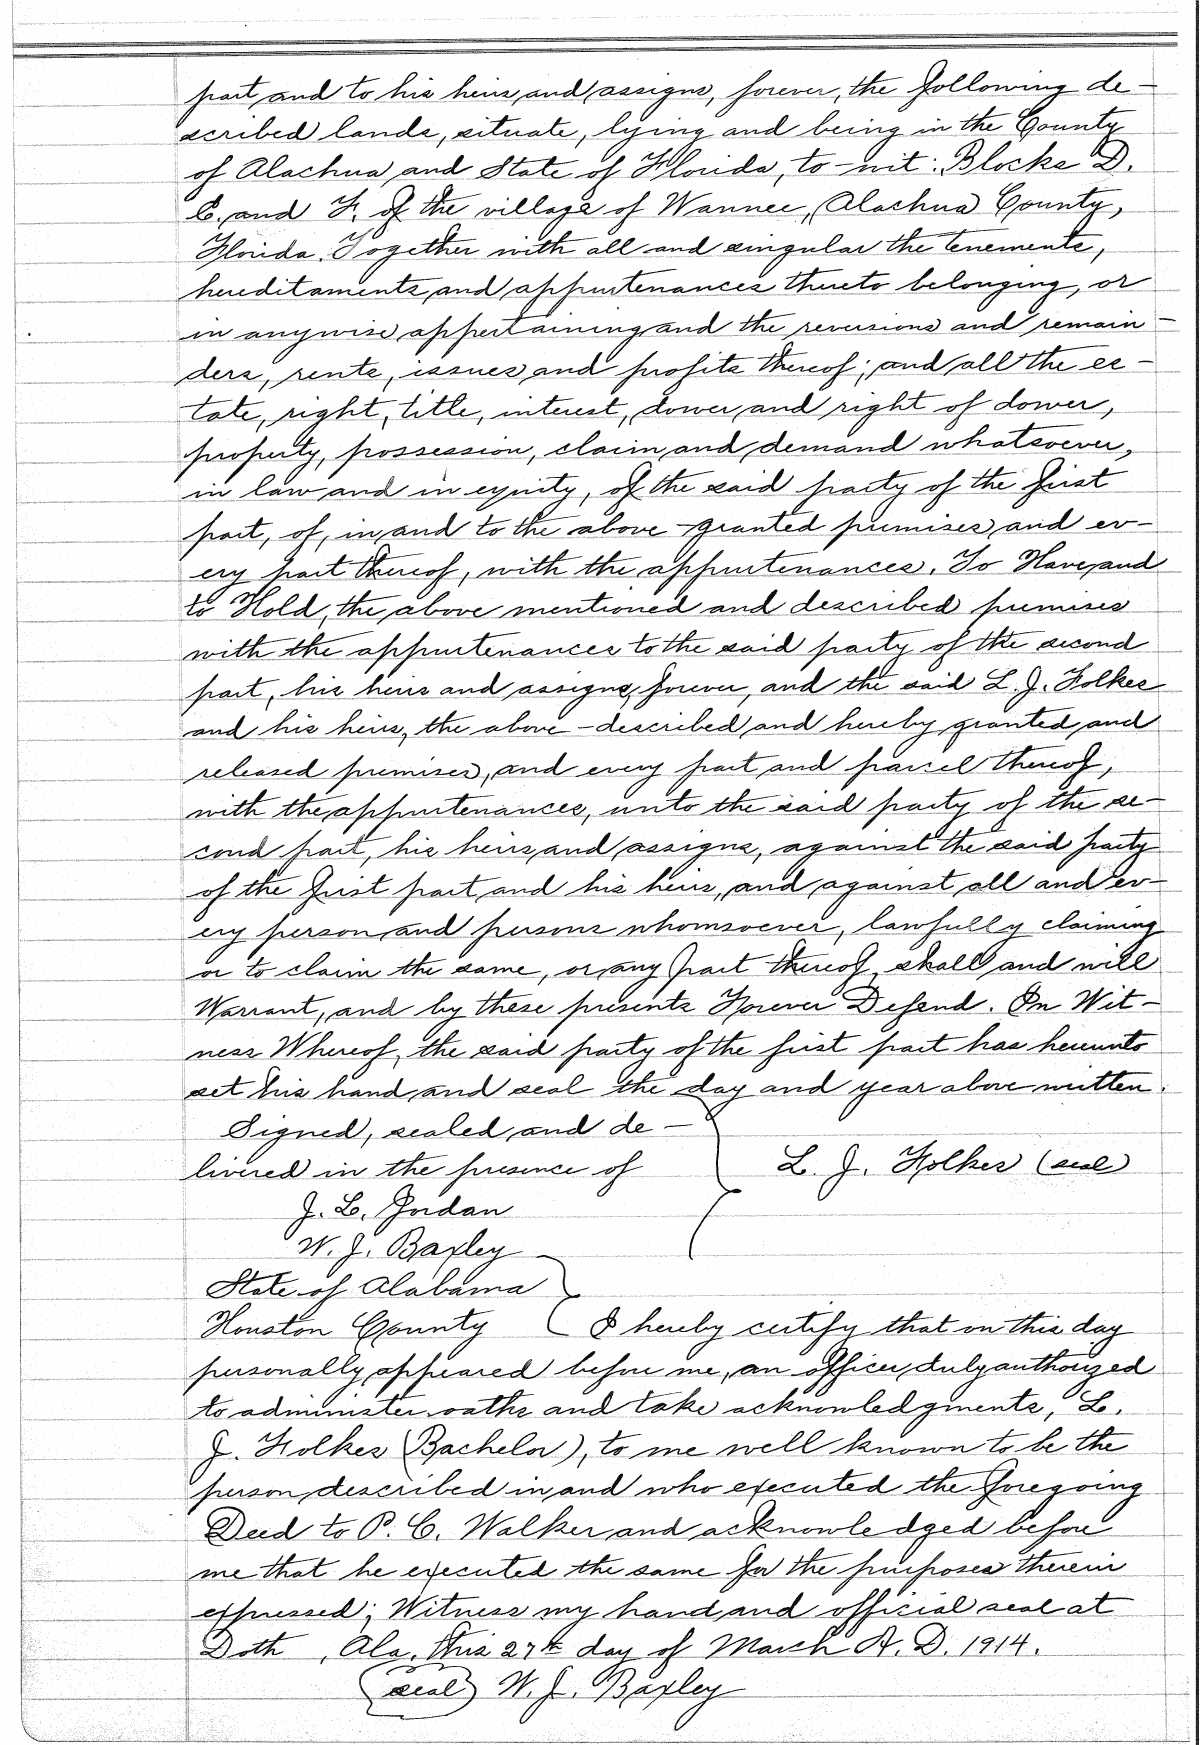 part, and to his heirs, and assigns, forever, the following de-
scribed lands, situate, lying and being in the County
of Alachua, and State of Florida, to-wit: Blocks D.
E. and F. of the village of Wannee, Alachua County,
Florida. Together with all and singular the tenements,
hereditaments, and appurtenances thereto belonging, or
in anywise appertaining, and the reversions and remain-
ders, rents, issues and profits thereof; and all the es-
tate, right, title, interest, dower, and right of dower,
property, possession, claim, and demand whatsoever,
in law, and in equity, of the said party of the first
part, of, in, and to the above-granted premises, and ev-
ery part thereof, with the appurtenances. To Have, and
to Hold, the above mentioned and described premises
with the appurtenances to the said party of the second
part, his heirs and assigns, forever, and the said L. J. Folkes
and his heirs, the above-described and hereby granted, and
released premises, and every part and parcel thereof,
with the appurtenances, unto the said party of the se-
cond part, his heirs, and assigns, against the said party
of the first part, and his heirs, and against all and ev-
ery person, and persons whomsoever, lawfully claiming
or to claim the same, or any part thereof, shall and will
Warrant, and by these presents Forever Defend. In Wit-
ness Whereof, the said party of the first part has hereunto
set his hand and seal the day and year above written.
Signed, sealed and de-
livered in the presence of L. J. Folkes (seal)
J. L. Jordan
W. J. Baxley
State of Alabama
Houston County I hereby certify that on this day
personally appeared before me, an officer, duly authorized
to administer oaths and take acknowledgments, L.
J. Folkes (Bachelor), to me well known to be the
person described in, and who executed the foregoing
Deed to P. C. Walker and acknowledged before
me that he executed the same for the purposes therein
expressed; Witness my hand and official seal at
Doth , Ala, this 27th day of March A. D. 1914.
(seal) W. J. Baxley